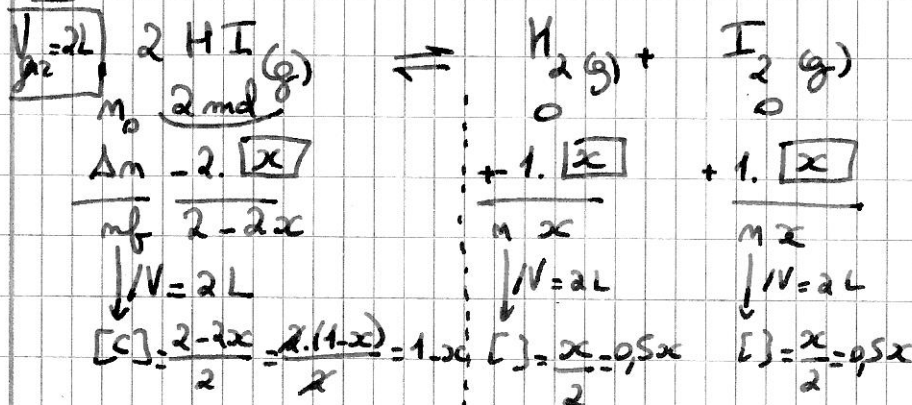 V gaz = 2L 2 HI (g) ⇌ H2 (g) + I2 (g)
n0 2 mol 0 0
Δn - 2. x + 1. x + 1. x
nf 2 - 2x n x n x
↓ /V = 2 L ↓ /V = 2L ↓ /V = 2L
[C] = 2-2x/2 = 2.(1-x)/2 = 1-x [ ] = x/2 = 0,5x [ ] = x/2 = 0,5x